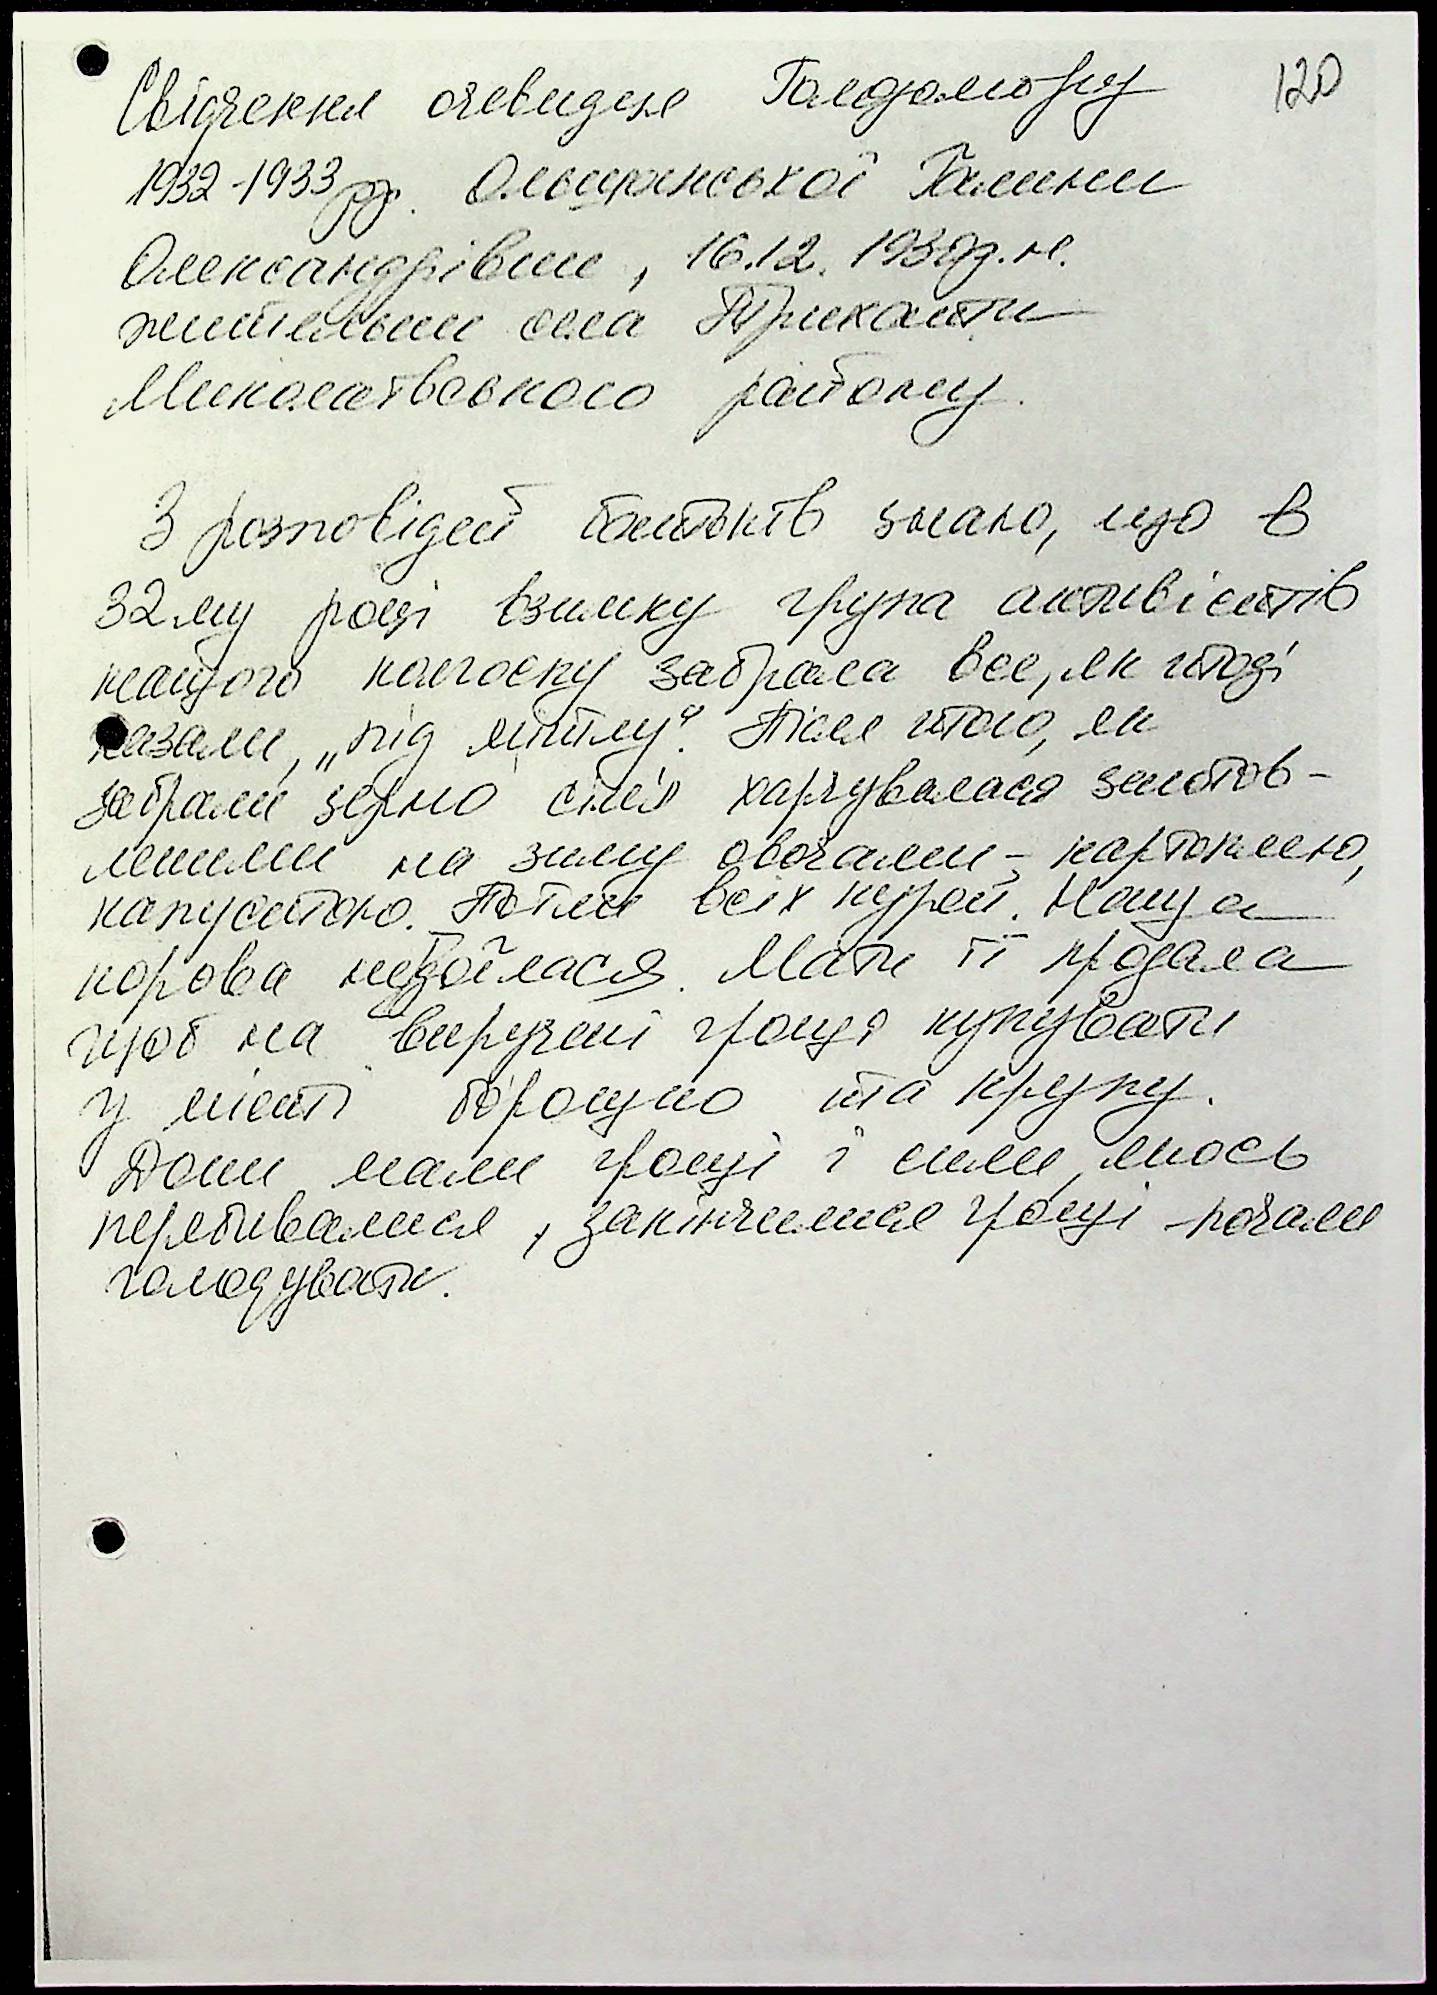 Свідчення очевидця Голодомору 120
1932-1933 рр. Ольшанської Галини
Олександрівни, 16.12. 1930р.н.
жительки села Трихати
Миколаївського району.
З розповідей батьків знаю, що в
32му році взимку група активістів
нашого колгоспу забрала все, як тоді
казали, „під мітлу“. Після того, як
забрали зерно сім'я харчувалася заготов-
леними на зиму овочами - картоплею,
капустою. Потім всіх курей. Наша
корова не доїлася. Мати її продала
щоб на виручені гроші купувати
у місті борошно та крупу.
Доки мали гроші і сили, якось
перебивалися, закінчилися гроші - почали
голодувати.